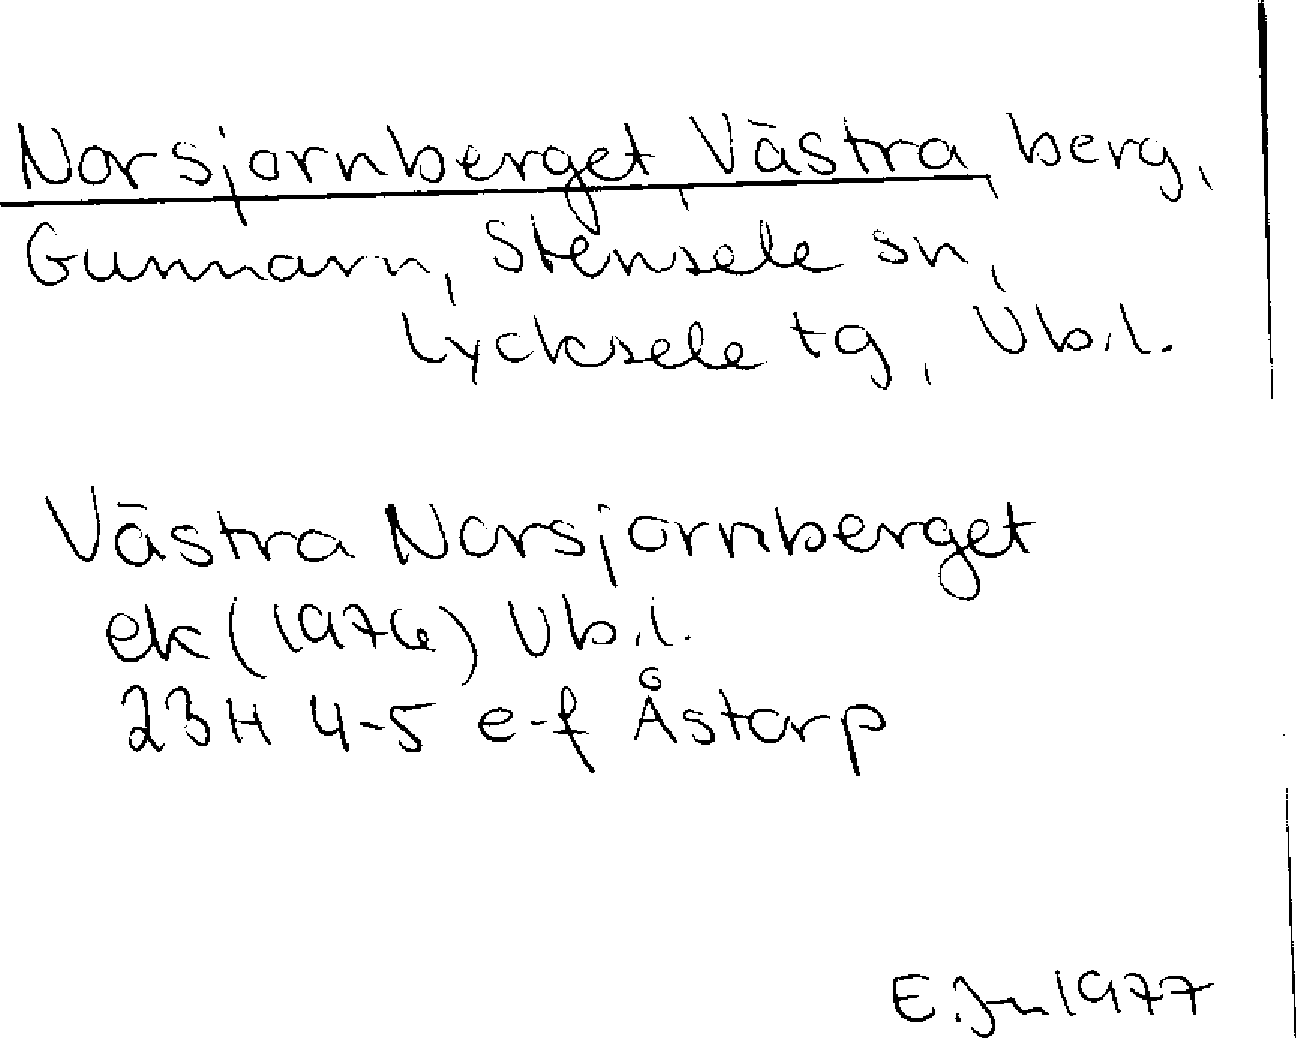 Norsjornberget, Västra, berg,
Gunnarn, Stensele sn,
Lycksele tg, Vb.l.
Västra Norsjornberget
ek (1976) Vb.l.
23H 4-5 e-f Åstorp
E. 1977